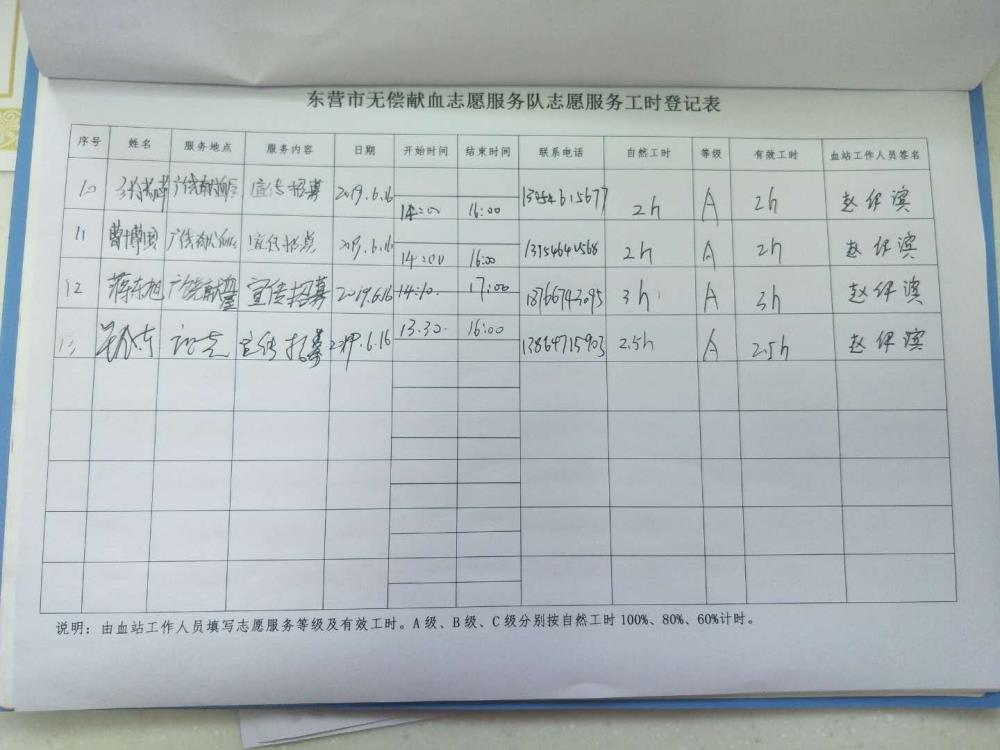 东营市无偿献血志愿服务队志愿服务工时登记表
序号 姓名 服务地点 服务内容 日期 开始时间 结束时间 联系电话 自然工时 等级 有效工时 血站工作人员签名
10 宣传招募 2019.6.16 14:00 16:00 13454615677 2h A 2h 赵伊滨
11 曹博 宣传招募 2019.6.16 14:00 16:00 2h A 2h 赵伊滨
12 蒋东旭 宣传招募 2019.6.16 14:10. 17:00 13766743095 3h A 3h 赵伊滨
13 宣传招募 2019.6.16 13.30. 16:00 13864715903 2.5h A 2.5h 赵伊滨
说明：由血站工作人员填写志愿服务等级及有效工时。A级、B级、C级分别按自然工时100%、80%、60%计时。